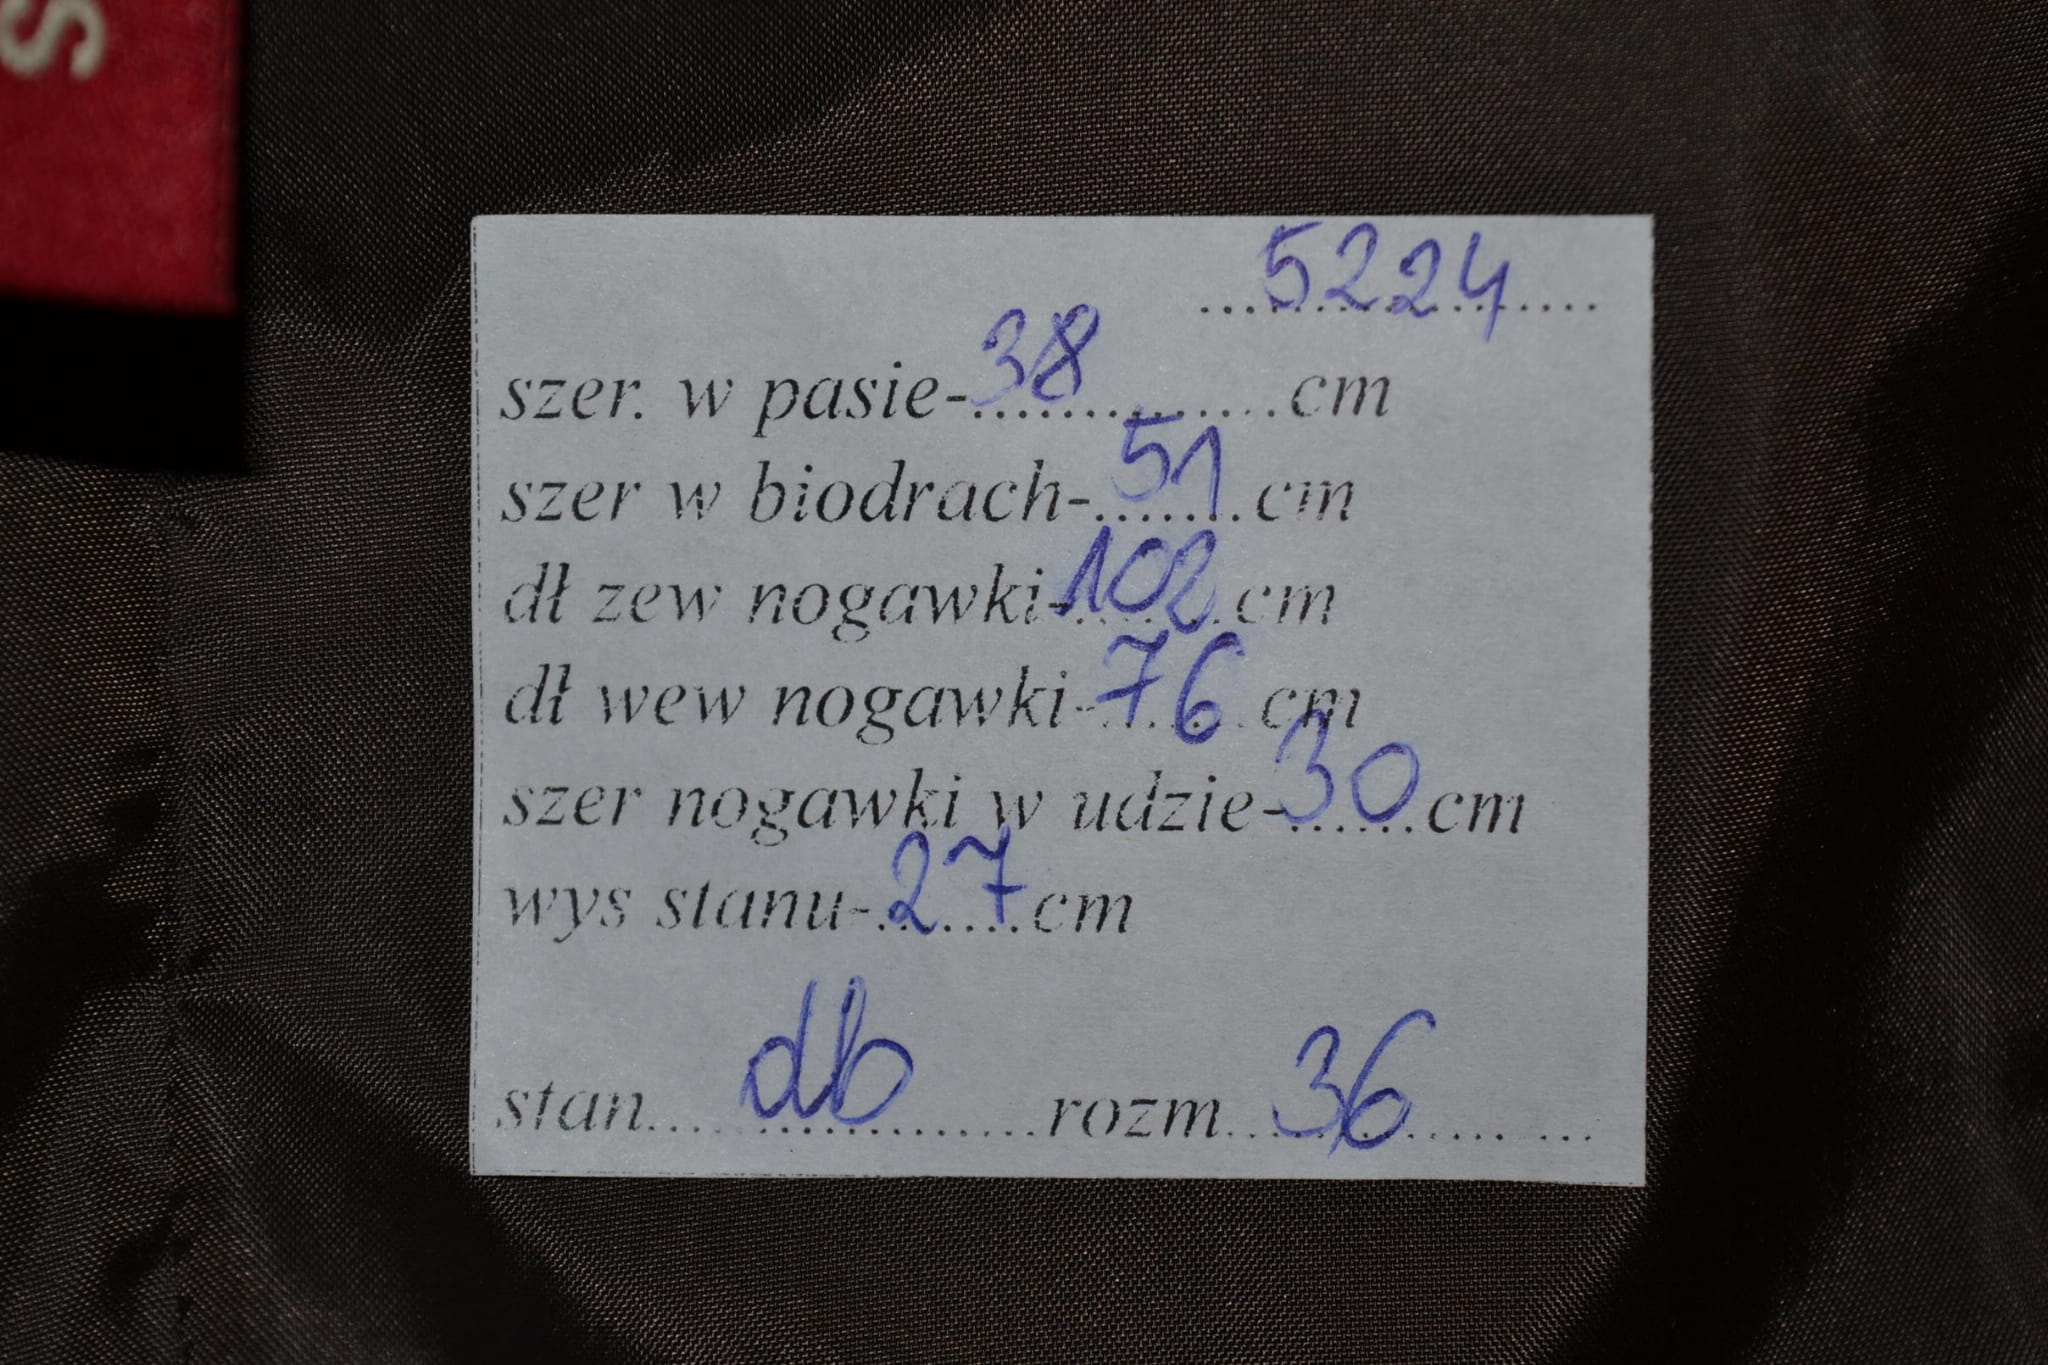 S
5224
szer. w pasie-38cm
szer w biodrach-51cm
dł zew nogawki-102cm
dł wew nogawki-76cm
szer nogawki w udzie-30cm
wys stanu-27cm
stan db rozm 36